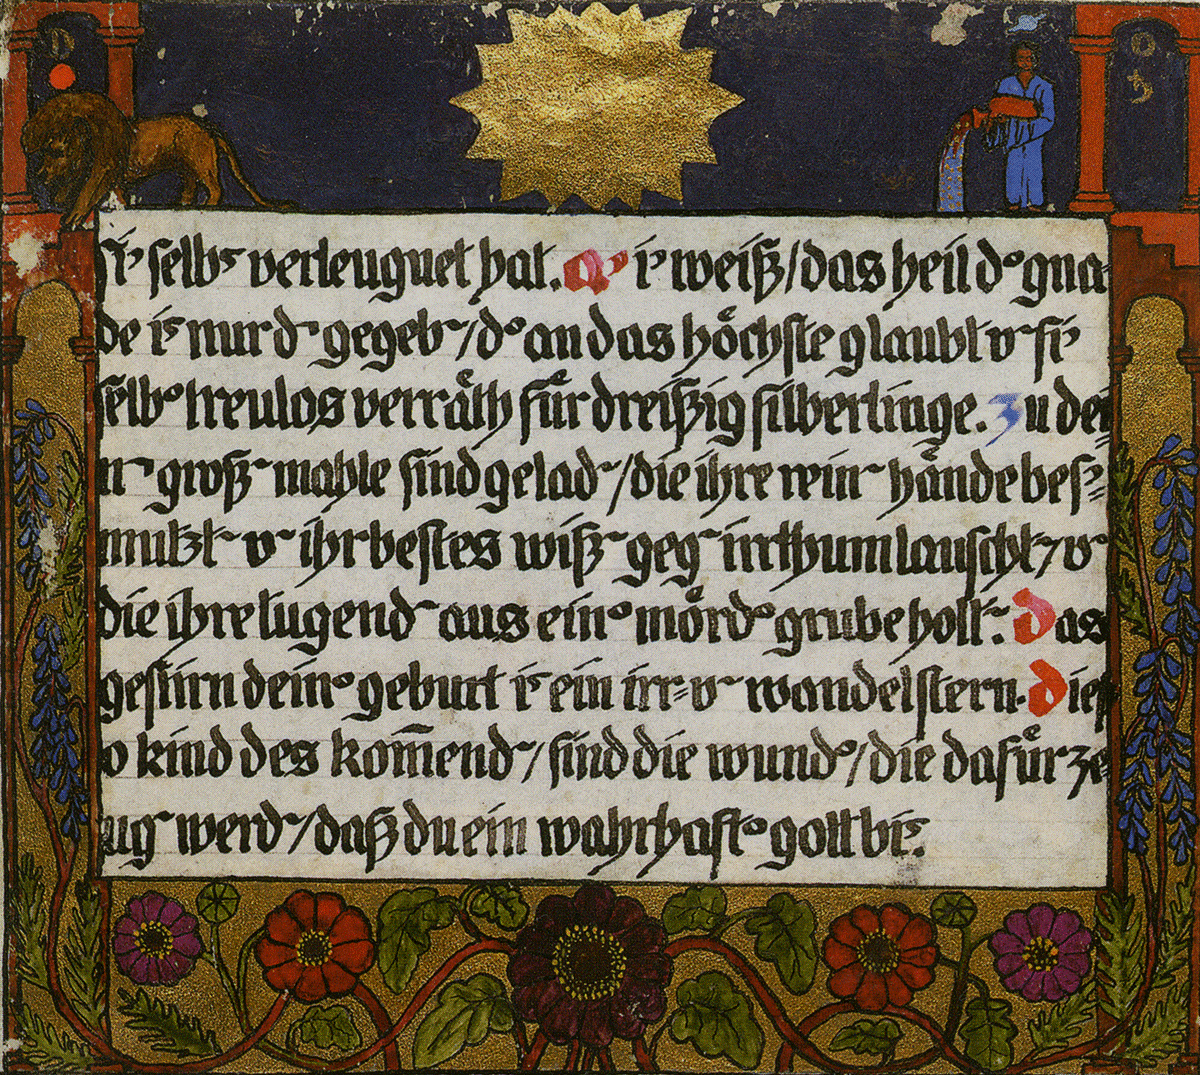 si' selbs' verleugnet hat. i' weiß/das heil d° gna
de is' nur d' gegeb~/d° an das höchste glaubt v~ si'
selb° treulos verräth für dreißig silberlinge. Zu dei
n~ groß~ mahle sind gelad~/die ihre rein~ hände bes=
mutzt~ v~ ihr bestes wiß~ geg~ irrthum lauscht~/v~
die ihre tugend~ aus ein° mörd°grube holt~. Das
gestirn dein° geburt is' ein irr= v~ wandelstern. Dies
o kind des kom̄end~/sind die wund°/die dafür ze
ug~ werd~/daß du ein wahrhaft° gott bis'.